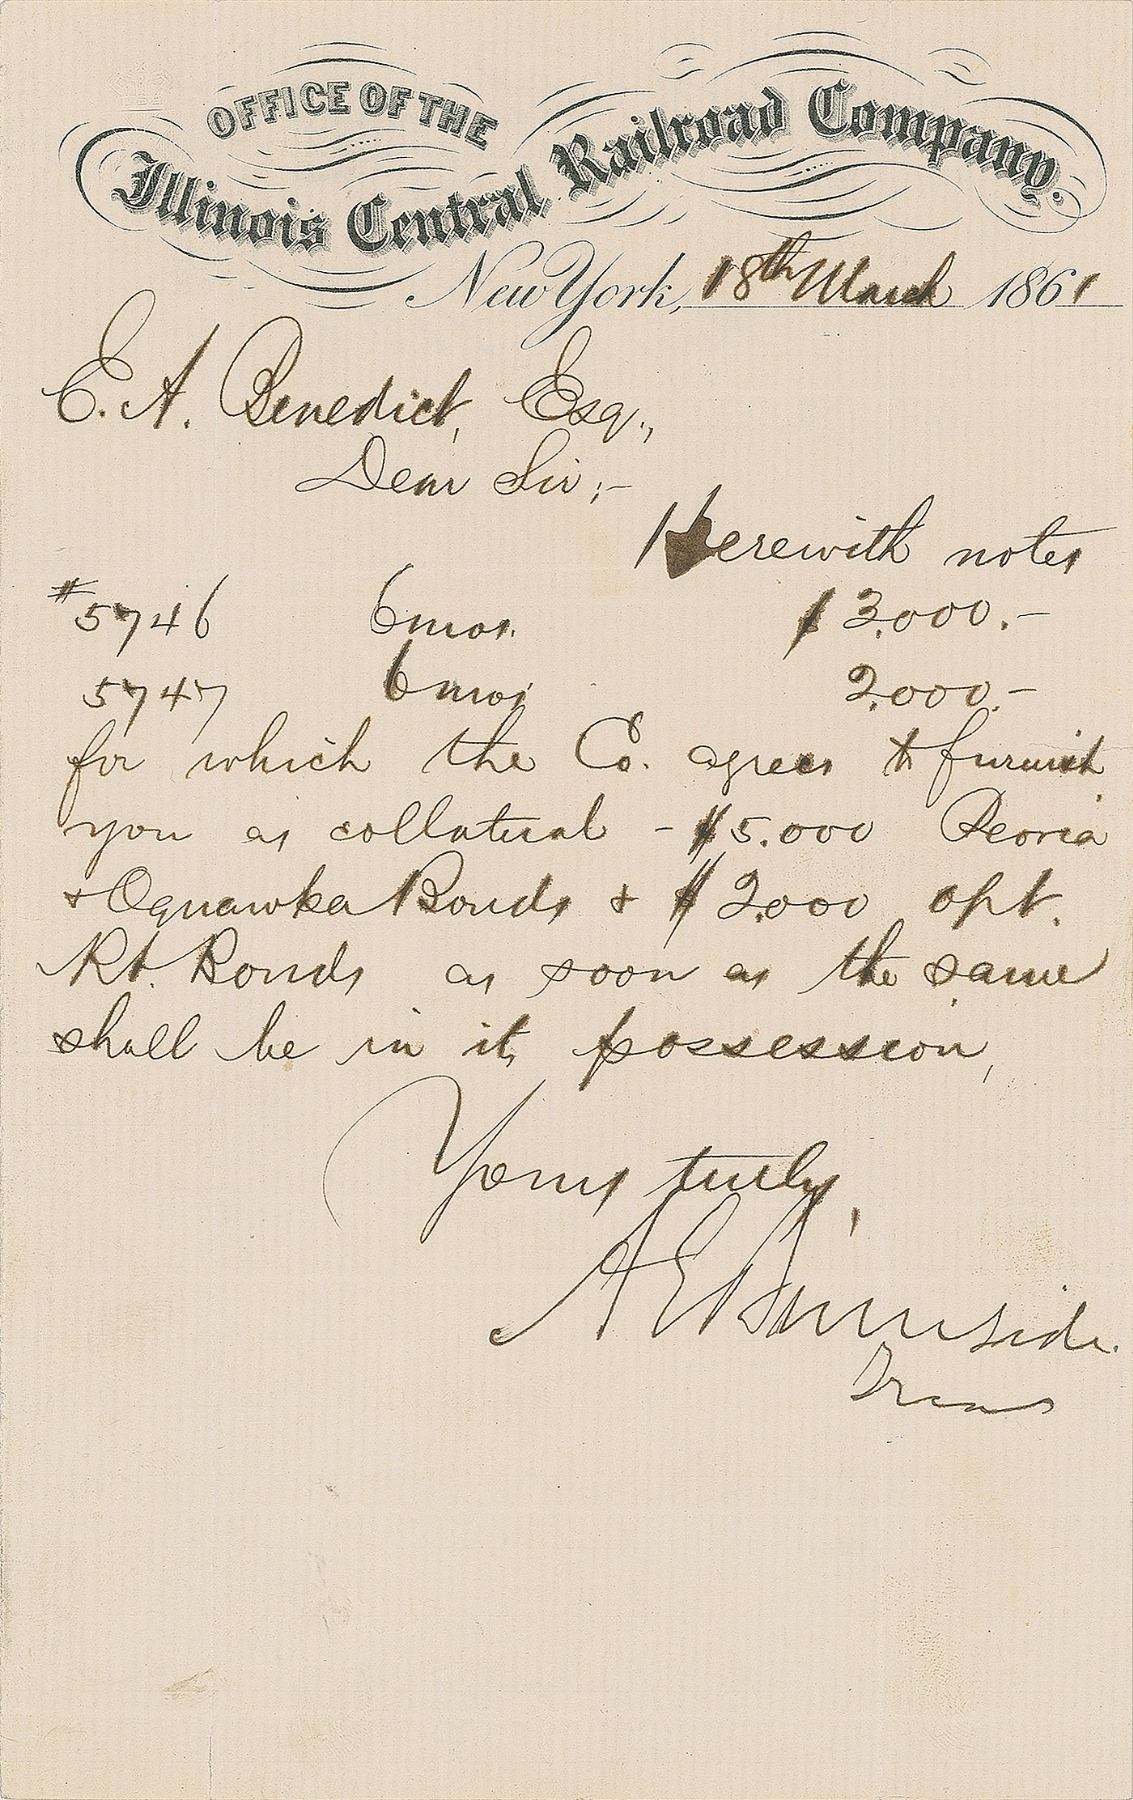 OFFICE OF THE
Illinois Central Railroad Company.
New York, 18th March 1861
E. A. Benedict, Esq.,
Dear Sir;-
Herewith notes
#5746 6mos. $3.000.-
5747 6mos 2.000.-
for which the Co. agrees to furnish
you as collateral - $5.000 Peoria
& Oquawka Bonds & $2.000 opt.
Rt. Bonds as soon as the same
shall be in its possession,
Yours truly,
A E Burnside.
Treas